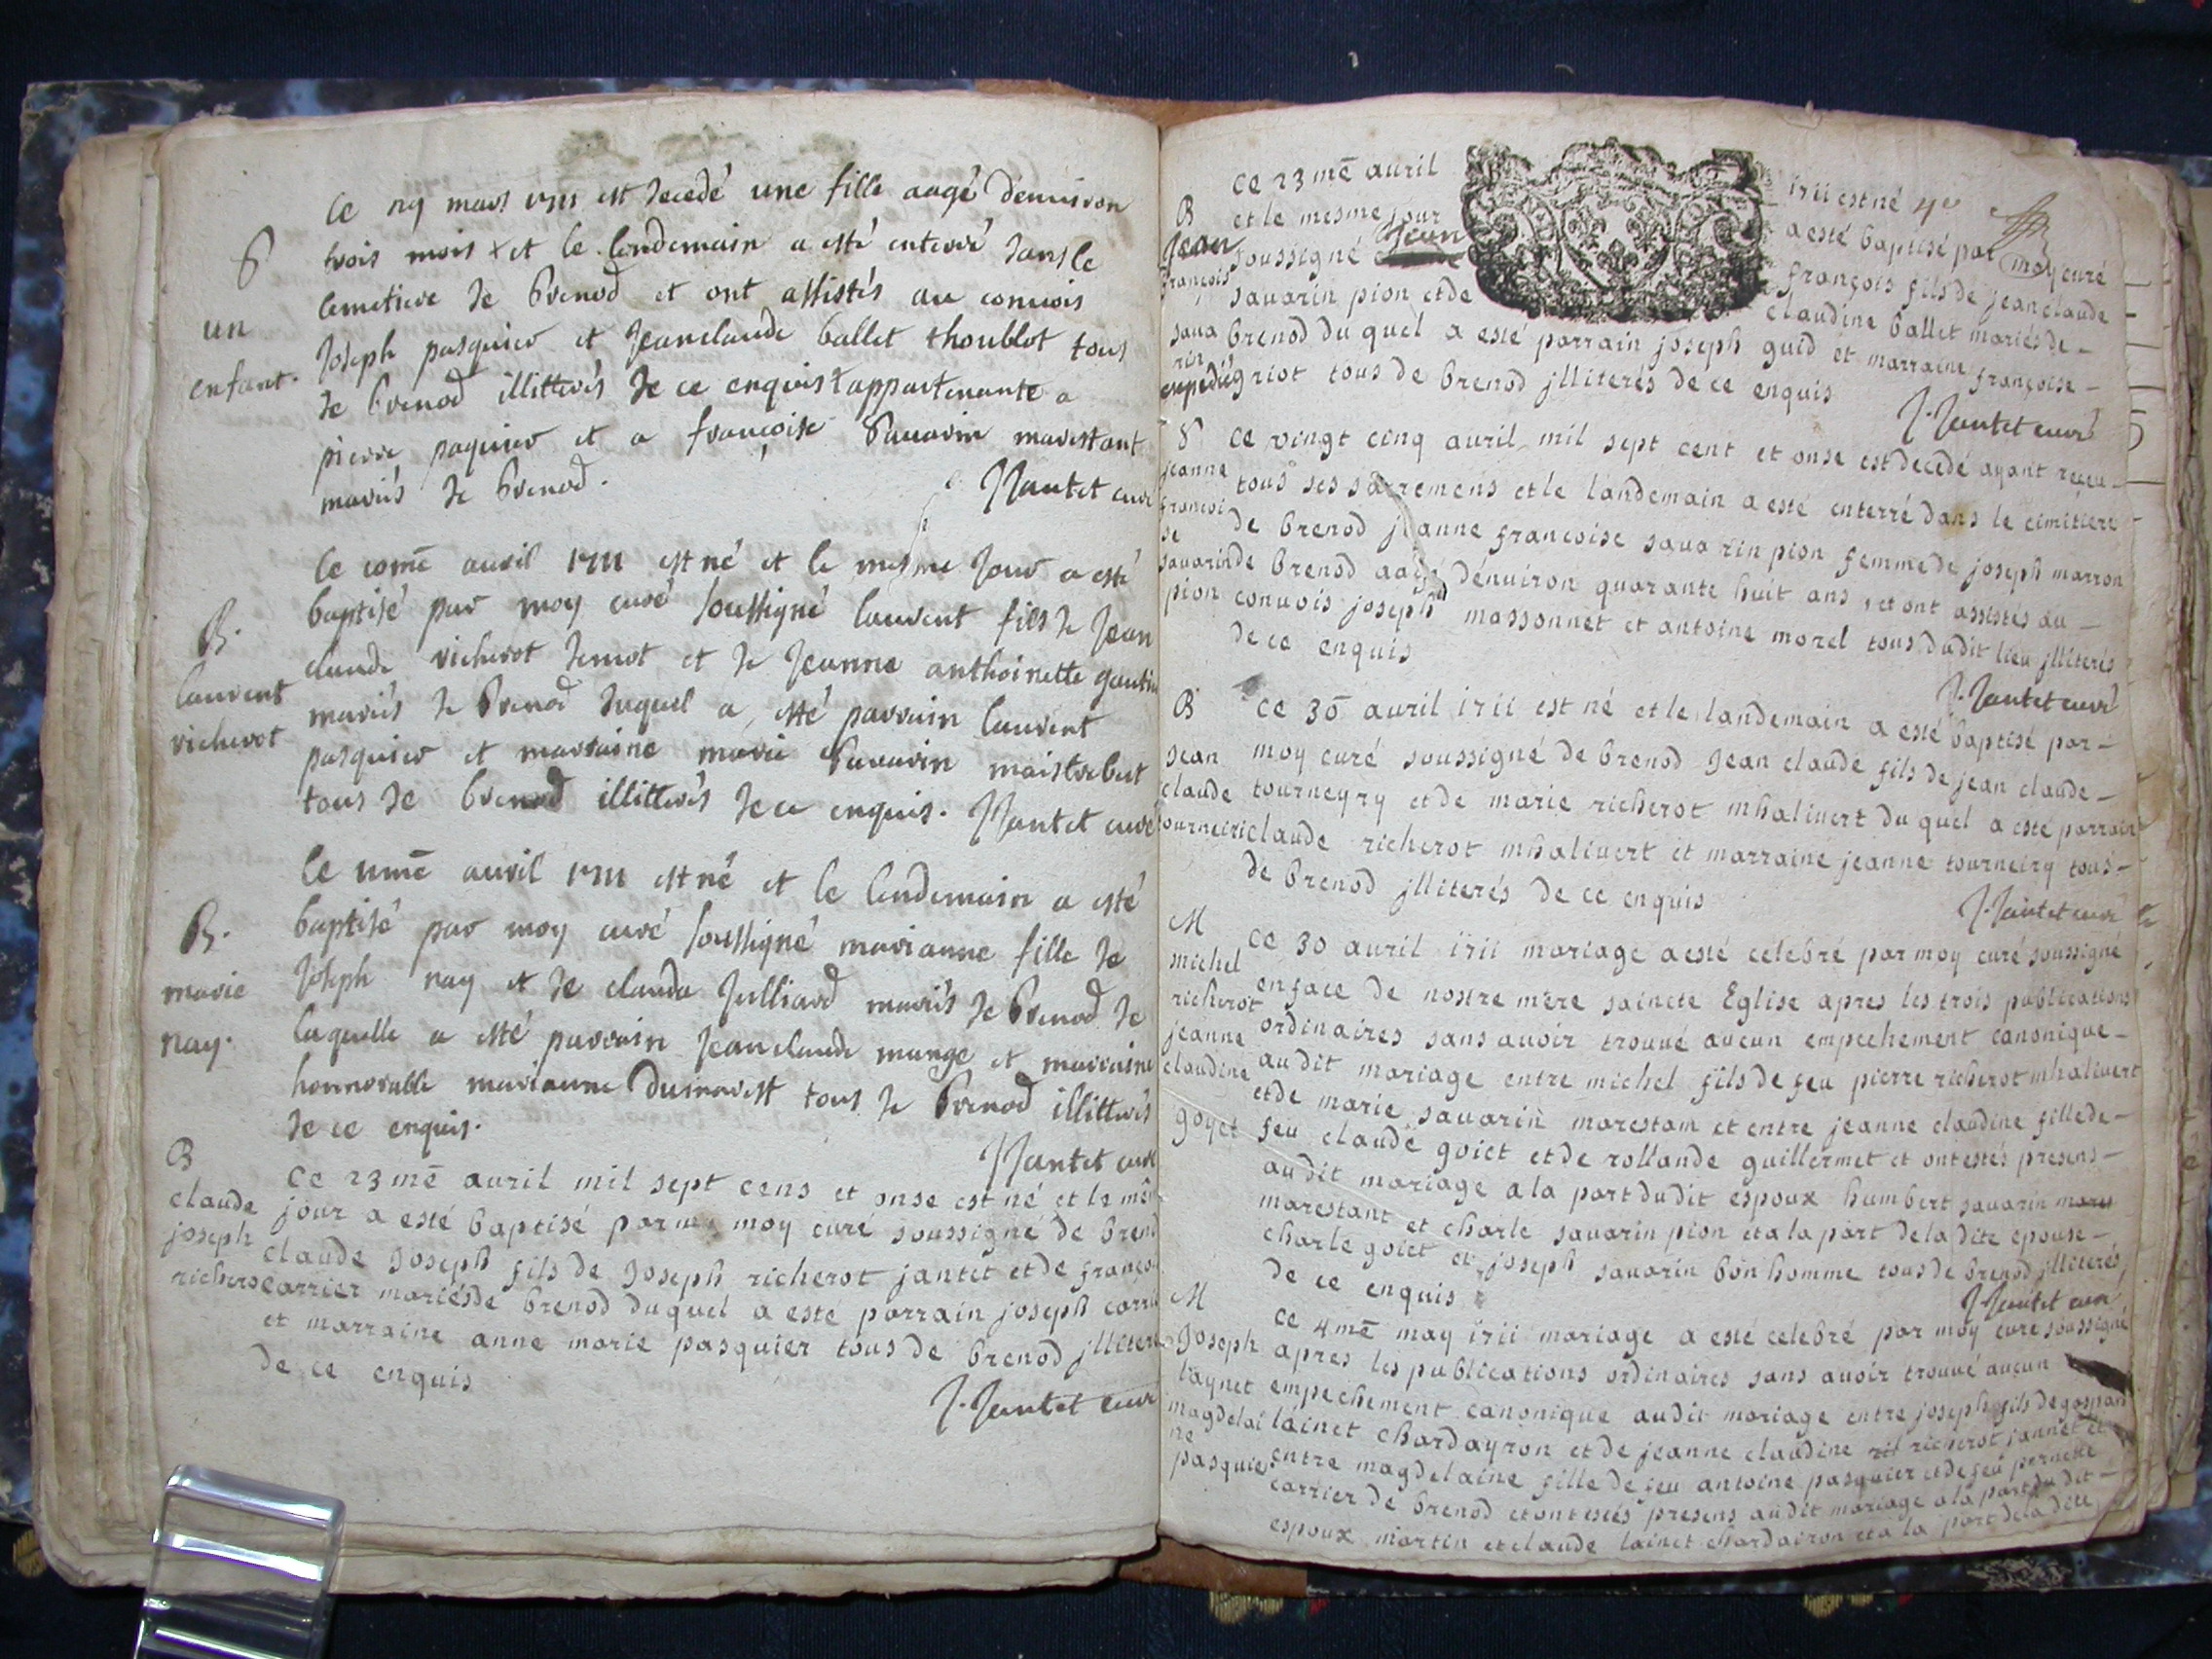 Ce mars 1711 est decedé une fille aagé denuiron
S
trois mois + et le lendemain a esté enterré dans le
cemetiere de Brenod et ont assistés au conuois
un
Joseph pasquier et Jeanclaude ballet thoublot tous
enfant.
de brenod illitterés de ce enquis + appartenante a
pierre paquier et a françoise Sauarin marestant
mariés de brenod.
J Jantet curé
Ce auril 1711 est né et le mesme Jour a esté
baptisé par moy curé soussigné laurent fils de Jean
B.
claude richerot et de Jeanne anthoinette
laurent
mariés de Brenod duquel a esté parrain laurent
richerot
pasquier et marraine marie Sauarin
tous de brenod illitterés de ce enquis. J Jantet curé
Ce auril 1711 est né et le lendemain a esté
baptisé par moy curé soussigné marianne fille de
B.
Joseph nay et de clauda Julliard mariés de Brenod de
marie
laquelle a esté parrain Jeanclaude mange et marraine
nay.
honnorable marianne Dumarest tous de Brenod illitterés
de ce enquis.
J Jantet curé
B
ce 23 mē auril mil sept cens et onse est né et le mê
claude
jour a esté baptisé par moy curé soussigné de bren
joseph
claude Joseph fils de Joseph richerot jantet et de franço
richerot
carrier mariés de brenod duquel a esté parrain joseph carri
et marraine anne marie pasquier tous de brenod jllitere
de ce enquis
J. Jantet curé
ce 23 mē auril 1711 est né 4e
B
et le mesme jour a esté baptisé par moy curé
Jean
soussigné Jean françois fils de jean claude
françois
sauarin pion et de claudine ballet mariés de -
saua
brenod du quel a esté parrain joseph guid et marraine françoise -
rin
expedié
griot tous de brenod jlliterés de ce enquis
J. Jantet curé
S
ce vingt cinq auril mil sept cent et onse est decedé ayant receu -
jeanne
tous ses sacremens et le landemain a esté enterré dans le cimitiere -
francoi
de brenod jeanne francoise sauarin pion femme de joseph marron
se
sauarin
de brenod aagé dénuiron quarante huit ans, et ont assistés au -
pion
conuois joseph massonnet et antoine morel tous dudit lieu jlliterés
de ce enquis
J. Jantet curé
B
ce 30 auril 1711 est né et le landemain a esté baptisé par -
Jean
moy curé soussigné de brenod Jean claude fils de jean claude -
claude
tourneyry et de marie richerot mhaliuert du quel a esté parrain
tourneiri
claude richerot mhaliuert et marraine jeanne tourneiry tous -
de brenod jlliterés de ce enquis
J. Jantet curé
M
ce 30 auril 1711 mariage a esté celebré par moy curé soussigné
michel
en face de nostre mère saincte Eglise apres les trois publications
richerot
ordinaires sans auoir trouué aucun empechement canonique -
jeanne
audit mariage entre michel fils de feu pierre richerot mhaliuert
claudine
et de marie sauarin marestam et entre jeanne claudine fille de -
goyet
feu claude goiet et de rollande guillermet et ont estés presens -
audit mariage a la part dudit espoux humbert sauarin mares
marestant et charle sauarin pion et a la part de la dite epouse -
charle goiet et joseph sauarin bon homme tous de brenod jlliterés
de ce enquis
J Jantet curé
M
ce 4 mē may 1711 mariage a esté celebré par moy curé soussigné
Joseph
apres les publications ordinaires sans auoir trouué aucun
laynet
empechement canonique audit mariage entre joseph fils de gaspar
magdelai
lainet chardayron et de jeanne claudine richerot jannet et
ne
entre magdelaine fille de feu antoine pasquier et de feu pernette
pasquier
carrier de brenod et ont estés presens audit mariage a la part du dit -
espoux martin et claude lainet chardairon et a la part de la dite